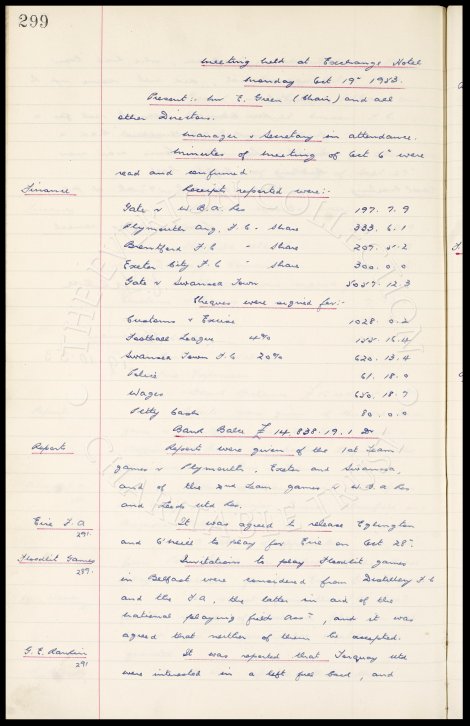 299
Meeting held at Exchange Hotel
Monday Oct 19th 1953.
Present:- Mr E. Green (Chair) and all
other Directors.
Manager & Secretary in attendance.
Minutes of meeting of Oct 6th were
read and confirmed
Finance
Receipts reported were:-
Gate v W.B.A. Res 197. 7. 9
Plymouth Arg. F.C - Share 333. 6. 1
Brentford F.C - Share 207. 5. 2
Exeter City F.C - Share 300. 0. 0
Gate v Swansea Town 5057. 12. 3
Cheques were signed for:-
Customs & Excise 1028. 0. 2
Football League 4% 155. 16. 4
Swansea Town F.C 20% 620. 13. 4
Police 61. 18. 0
Wages 650. 18. 7
Petty Cash 80. 0. 0
Bank Balce £ 14,838. 19. 1 Dr
Reports
Reports were given of the 1st Team
games v Plymouth, Exeter and Swansea,
and of the 2nd Team games v W.B.A Res
and Leeds Utd Res.
Eire F.A
291.
It was agreed to release Eglington
and O'Neill to play for Eire on Oct 28th.
Floodlit Games
289.
Invitations to play Floodlit games
in Belfast were considered from Distillery F.C
and the F.A, the latter in aid of the
national playing fields Assn, and it was
agreed that neither of them be accepted.
G. E. Rankin
291
It was reported that Torquay Utd
were interested in a left full back, and
THE EVERTON COLLECTION
CHARITABLE TRUST